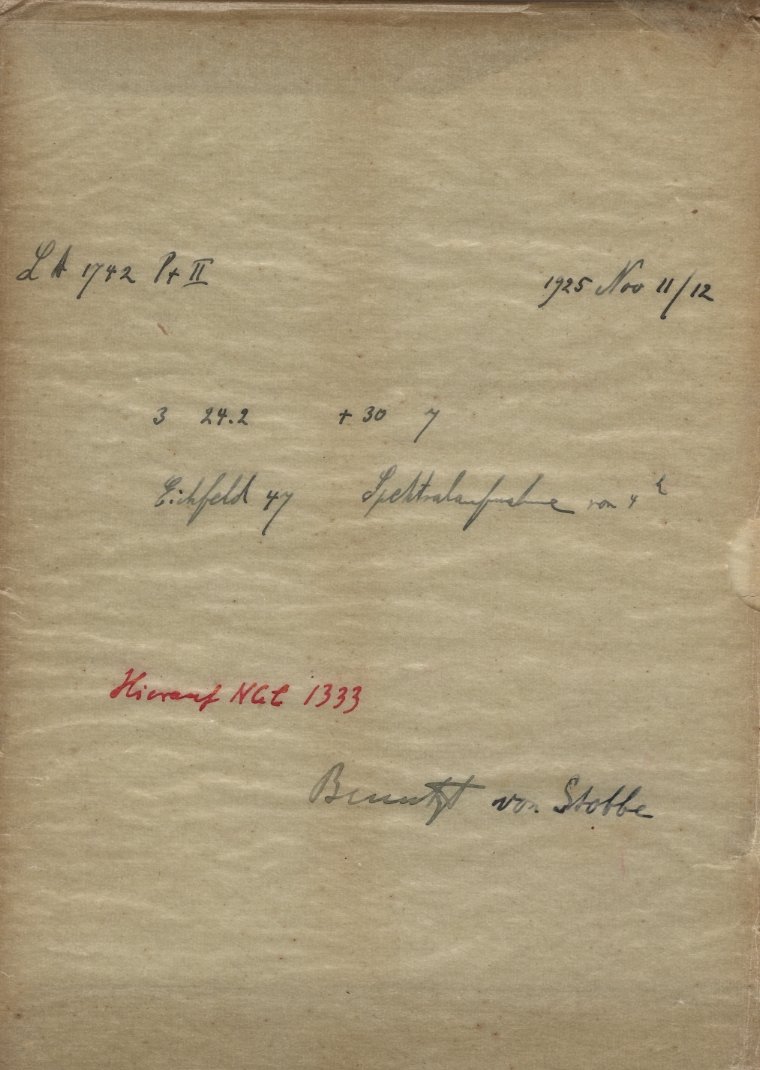 LA 1742 Pt II 1925 Nov 11/12
3 24.2 +30 7
Eichfeld 47 Spektralaufnahme von 4ʰ
Hierauf NGC 1333
Benutzt von Stobbe